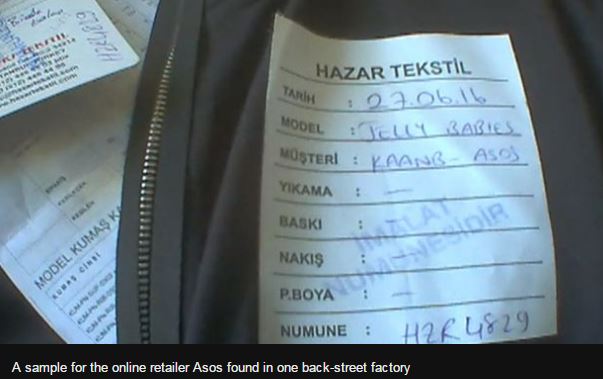 HAZAR TEKSTİL
TARİH : 27.06.16
MODEL : JELLY BABIES
MÜŞTERİ : KAANB - ASOS
YIKAMA : —
BASKI :
NAKIŞ : —
P.BOYA : —
NUMUNE : HZR 4829
İMALAT
NUMUNESİDİR
TEKSTİL
MODEL KUMAŞ
KUMAŞ CİNSİ
A sample for the online retailer Asos found in one back-street factory